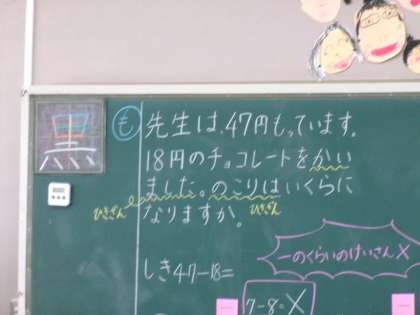 黒
も
先生は、47円もっています。
18円のチョコレートをかい
ました。のこりはいくらに
なりますか。
ひきざん
ひきざん
しき47-18=
一のくらいのけいさん×
7-8=×